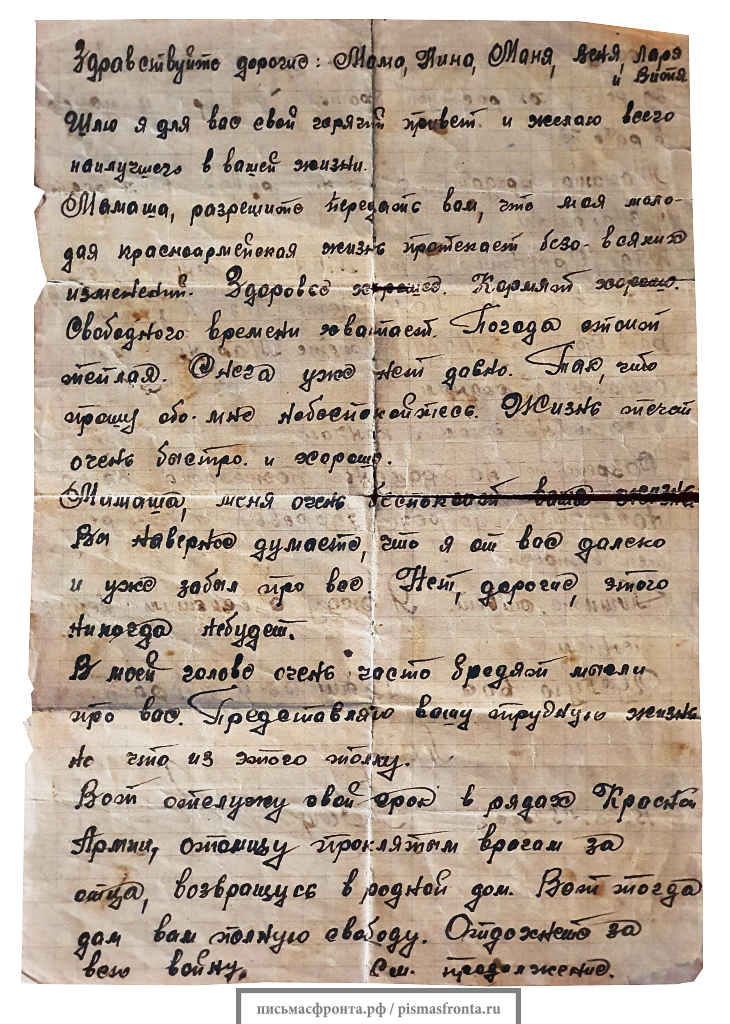 Здравствуйте дорогие: Мама, Нина, Маня, Веня, Лара
и Витя
Шлю я для вас свой горячий привет. и желаю всего
наилучшего в вашей жизни.
Мамаша, разрешите передать вам, что моя моло-
дая красноармейская жизнь протекает безо-всяких
изменений. Здоровье хорошее. Кормят хорошо.
Свободного времени хватает. Погода стоит
теплая. Снега уже нет давно. Так, что
прошу обо-мне небеспокойтесь. Жизнь течот
очень быстро. и хорошо.
Мамаша, меня очень беспокоит ваша жизнь.
Вы наверное думаете, что я от вас далеко
и уже забыл про вас. Нет, дорогие, этого
никогда небудет.
В моей голове очень часто бредят мысли
про вас. Представляю вашу трудную жизнь
но что из этого толку.
Вот отслужу свой срок в рядах Красной
Армии, отомщу проклятым врагам за
отца, возвращусь в родной дом. Вот тогда
дам вам полную свободу. Отдохнете за
всю войну. См. продолжение.
письмасфронта.рф / pismasfronta.ru